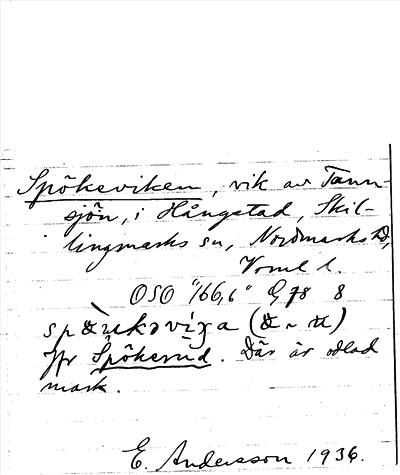 Spökeviken, vik av Tann-
sjön, i Hångstad, Skil-
lingmarks sn, Nordmarks hd,
Vrml l.
OSO 166,6 G 78 8
Jfr Spökerud. Där är odlad
mark.
E. Andersson 1936.